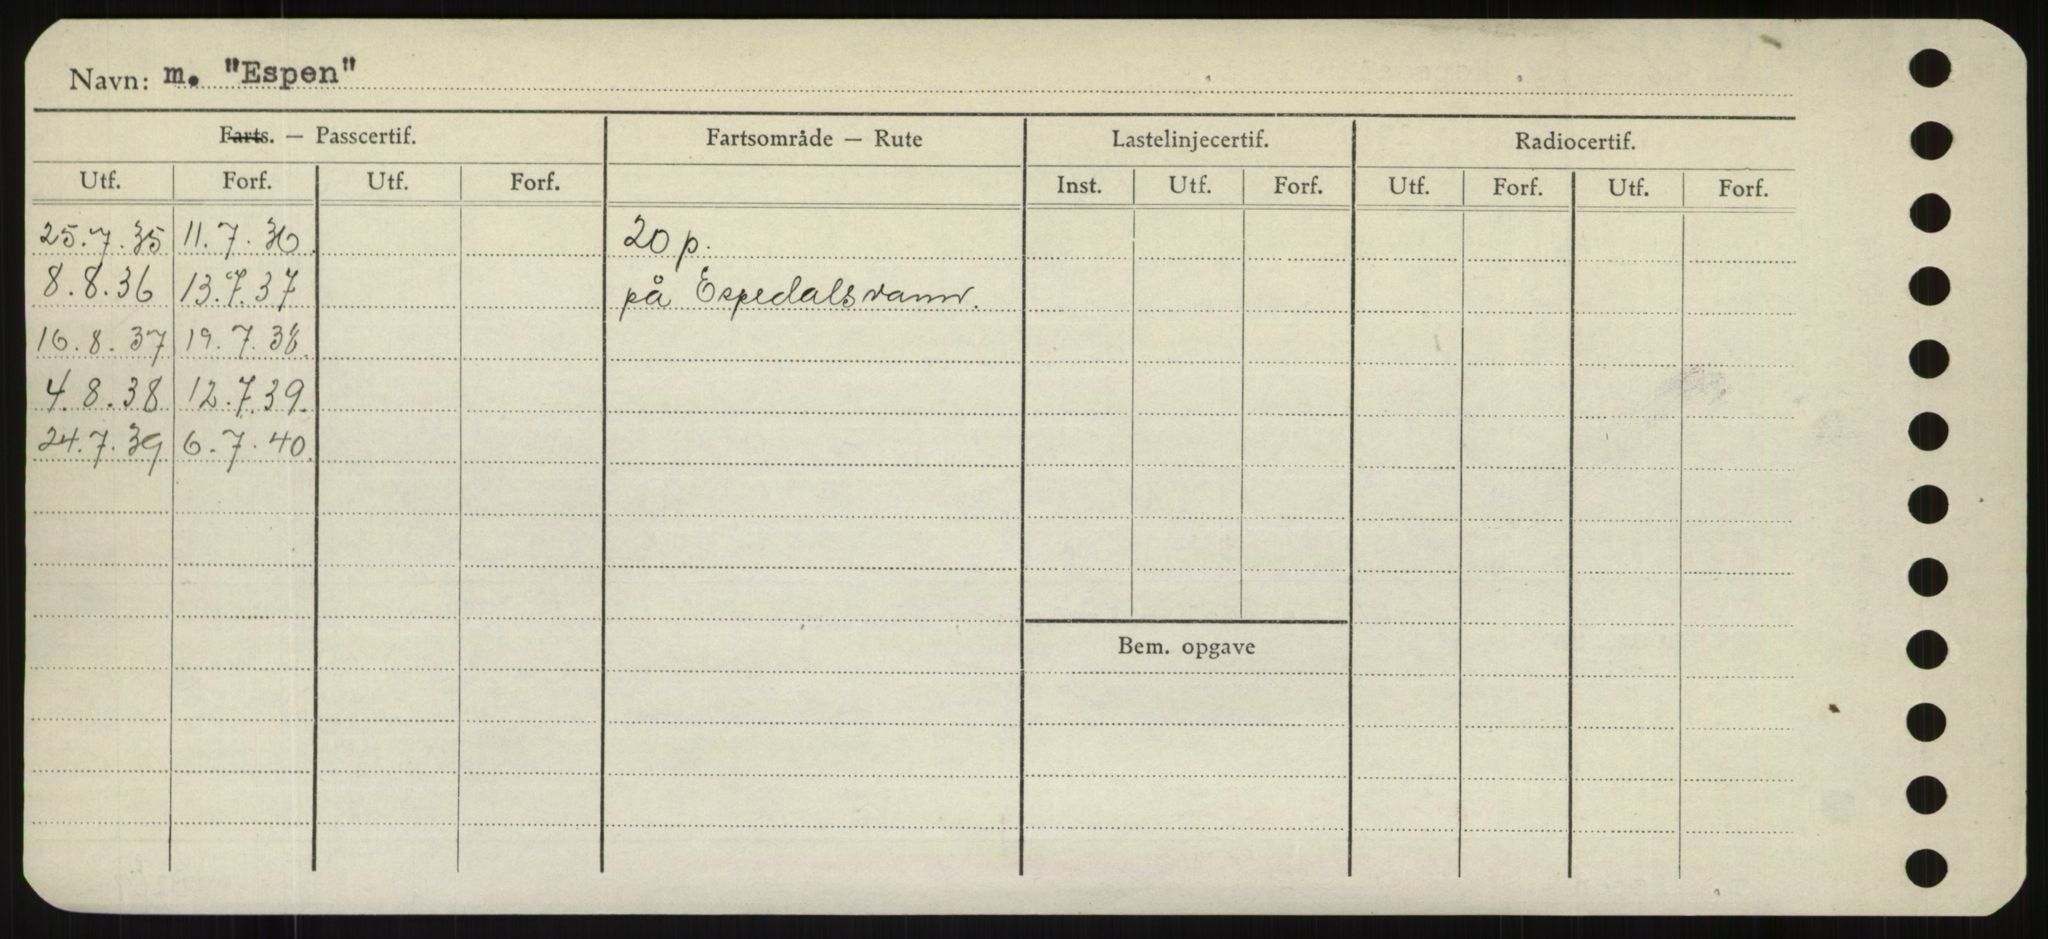 Navn: m. "Espen"
Farts. — Passcertif. Fartsområde — Rute Lastelinjecertif. Radiocertif.
Utf. Forf. Utf. Forf. Inst. Utf. Forf. Utf. Forf. Utf. Forf.
25.7.35 11.7.36 20 p.
8.8.36 13.7.37 på Espedalsvann.
16.8.37 19.7.38
4.8.38 12.7.39
24.7.39 6.7.40
Bem. opgave